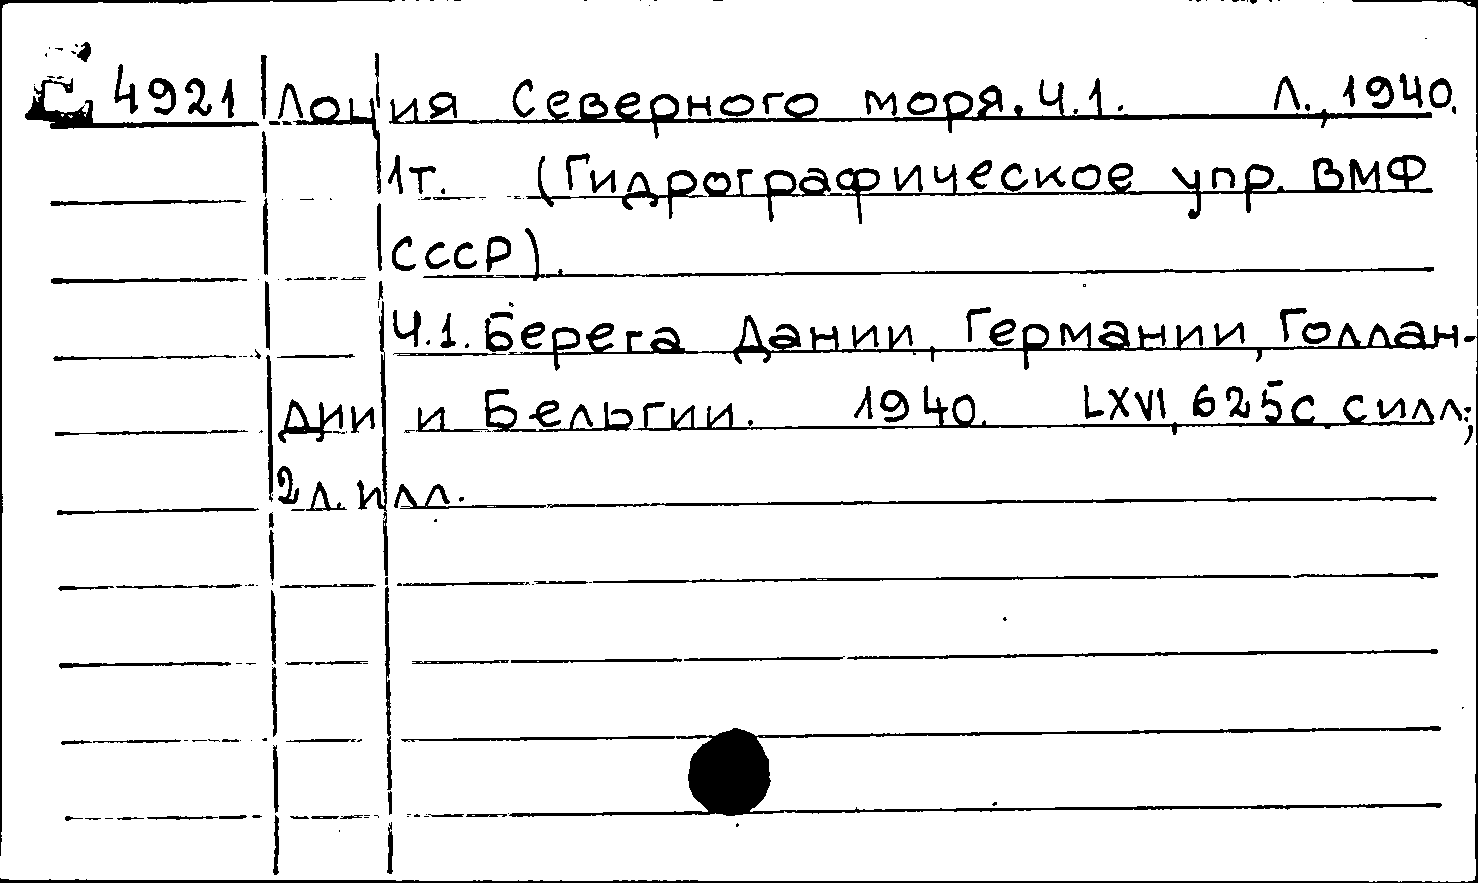 4921 Лоция Северного моря. Ч.1. Л., 1940.
1т. (Гидрографическое упр. ВМФ
СССР).
Ч.1. Берега Дании, Германии, Голлан-
дии и Бельгии. 1940. LXVI, 625с. с илл;
2 л. илл.